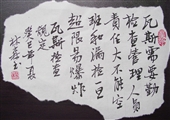 瓦斯需要勤
检查管理人员
责任大不能空
班和漏检一旦
超限易爆炸
瓦斯检查
规定